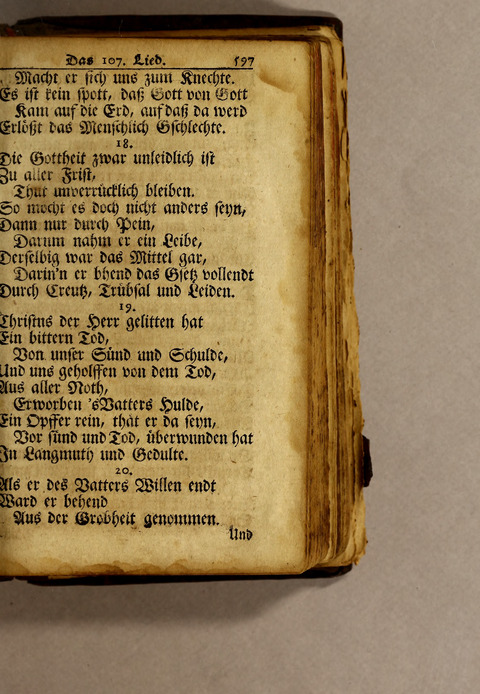 Das 107. Lied. 597
Macht er sich uns zum Knechte.
Es ist kein spott, daß Gott von Gott
Kam auf die Erd, auf daß da werd
Erlößt das Menschlich Gschlechte.
18.
Die Gottheit zwar unleidlich ist
Zu aller Frist,
Thut unverrücklich bleiben.
So mocht es doch nicht anders seyn,
Dann nur durch Pein,
Darum nahm er ein Leibe,
Derselbig war das Mittel gar,
Darin'n er bhend das Gsetz vollendt
Durch Creutz, Trübsal und Leiden.
19.
Christus der Herr gelitten hat
Ein bittern Tod,
Von unser Sünd und Schulde,
Und uns geholffen von dem Tod,
Aus aller Noth,
Erworben 'sVatters Hulde,
Ein Opffer rein, thät er da seyn,
Vor sünd und Tod, überwunden hat
In Langmuth und Gedulte.
20.
Als er des Vatters Willen endt
Ward er behend
Aus der Grobheit genommen.
Und